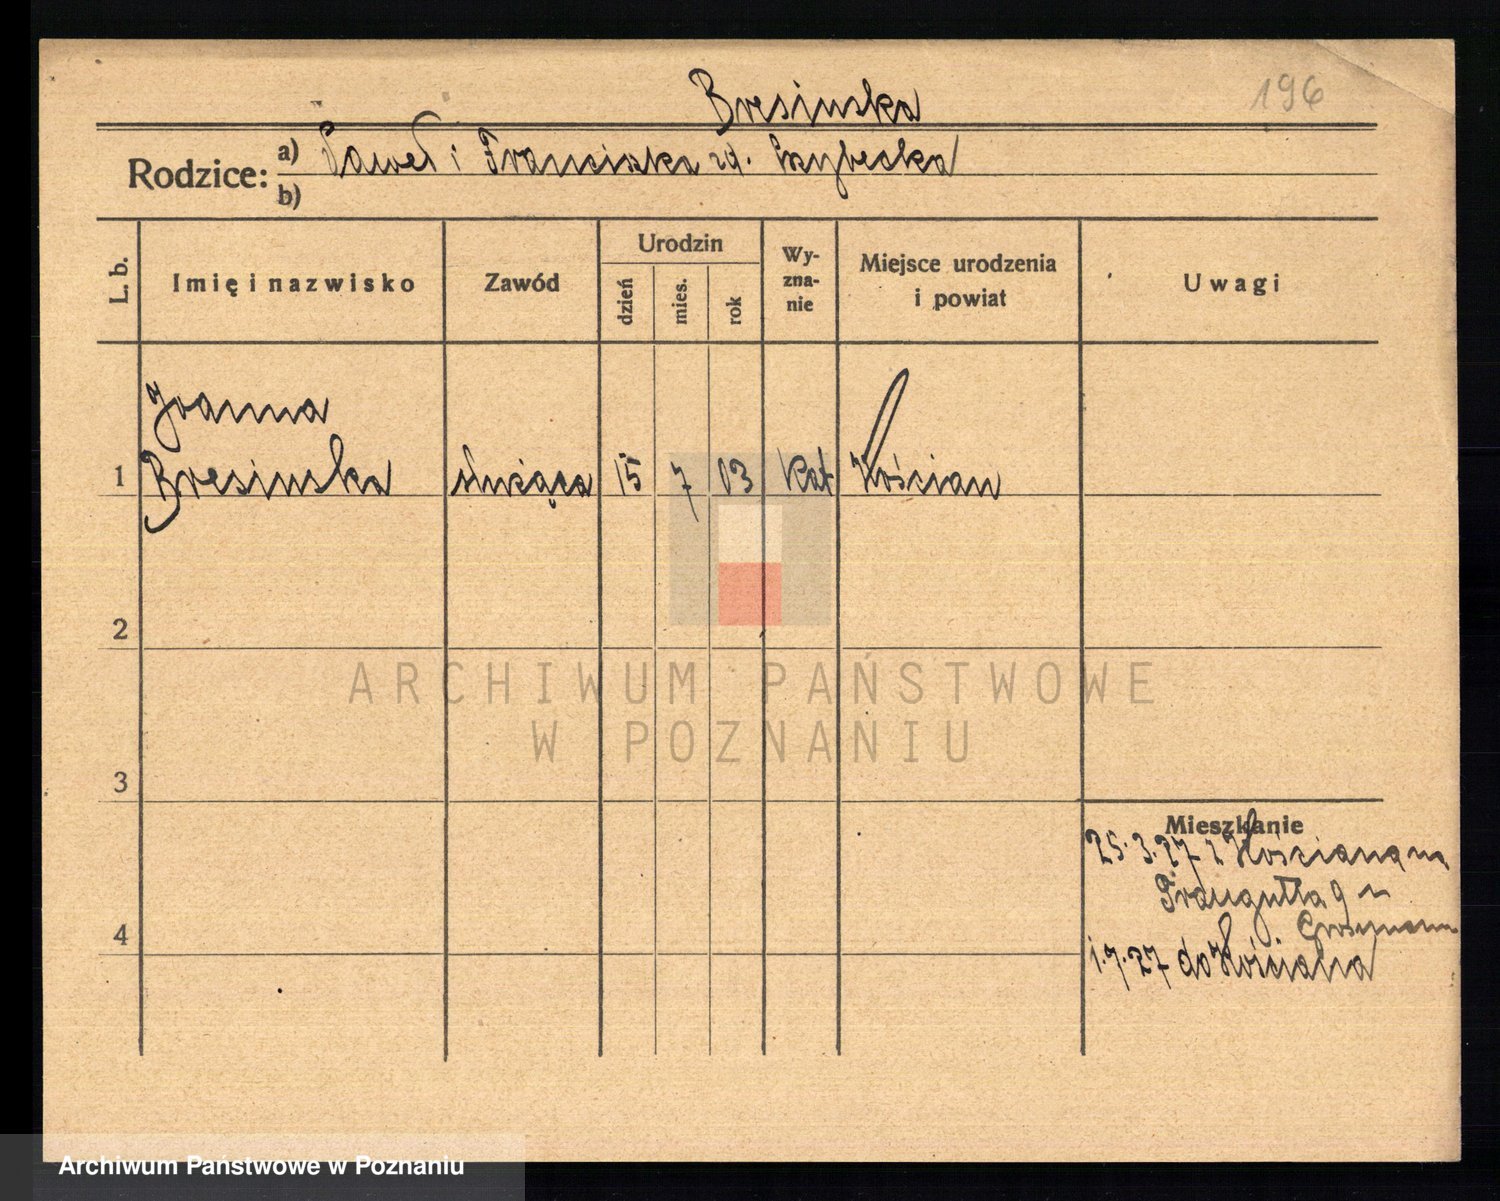 196
Bresinska
Rodzice: a) Paweł i Franciszka zd. Przybecka
b)
L. b.
Imię i nazwisko
Zawód
Urodzin
dzień
mies.
rok
Wy-
zna-
nie
Miejsce urodzenia
i powiat
Uwagi
Joanna
1 Bresinska służąca 15 7 03 kat Kościan
2
3
4
Mieszkanie
25.3.27 z Kościana na
Traugutta 9 u
1.7.27 do Kościana
ARCHIWUM PAŃSTWOWE
W POZNANIU
Archiwum Państwowe w Poznaniu